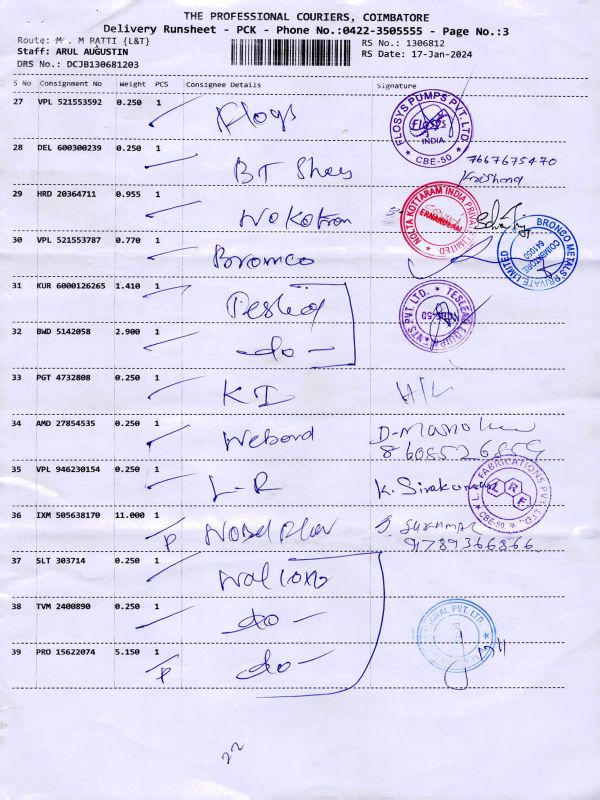 THE PROFESSIONAL COURIERS, COIMBATORE
Delivery Runsheet - PCK - Phone No.:0422-3505555 - Page No.:3
Route: M . M PATTI {L&T}
RS No.: 1306812
Staff: ARUL AUGUSTIN
RS Date: 17-Jan-2024
DRS No.: DCJB130681203
S No Consignment No Weight PCS Consignee Details Signature
27 VPL 521553592 0.250 1
FLOSYS PUMPS PVT. LTD.
Flosys
INDIA
CBE-50
28 DEL 600300239 0.250 1
BT Shoes
7667675470
29 HRD 20364711 0.955 1
NOLTA KOTTARAM INDIA PRIVATE LIMITED
ERNAKULAM
30 VPL 521553787 0.770 1
Bromco
BRONCO METALS PRIVATE LIMITED
COIMBATORE
641050
31 KUR 6000126265 1.410 1
32 BWD 5142058 2.900 1
-do-
33 PGT 4732808 0.250 1
KI
34 AMD 27854535 0.250 1
D-Manoh
35 VPL 946230154 0.250 1
L-R
K. Sivakumar
FABRICATIONS PVT LTD
LRF
CBE-50.
36 IXM 505638170 11.000 1
P
S. Sukumar
9789366866
37 SLT 303714 0.250 1
38 TVM 2400890 0.250 1
-do-
PVT. LTD.
39 PRO 15622074 5.150 1
P
-do-